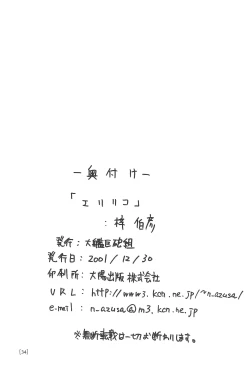 －奥付け－
「エリリコ」
：梓 伯彦
発行：大艦巨砲組
発行日：2001／12／30
印刷所：大陽出版株式会社
URL：http://www3.kcn.ne.jp/~n_azusa/
e-mail：n_azusa@m3.kcn.ne.jp
※無断転載は一切お断りします。
[34]